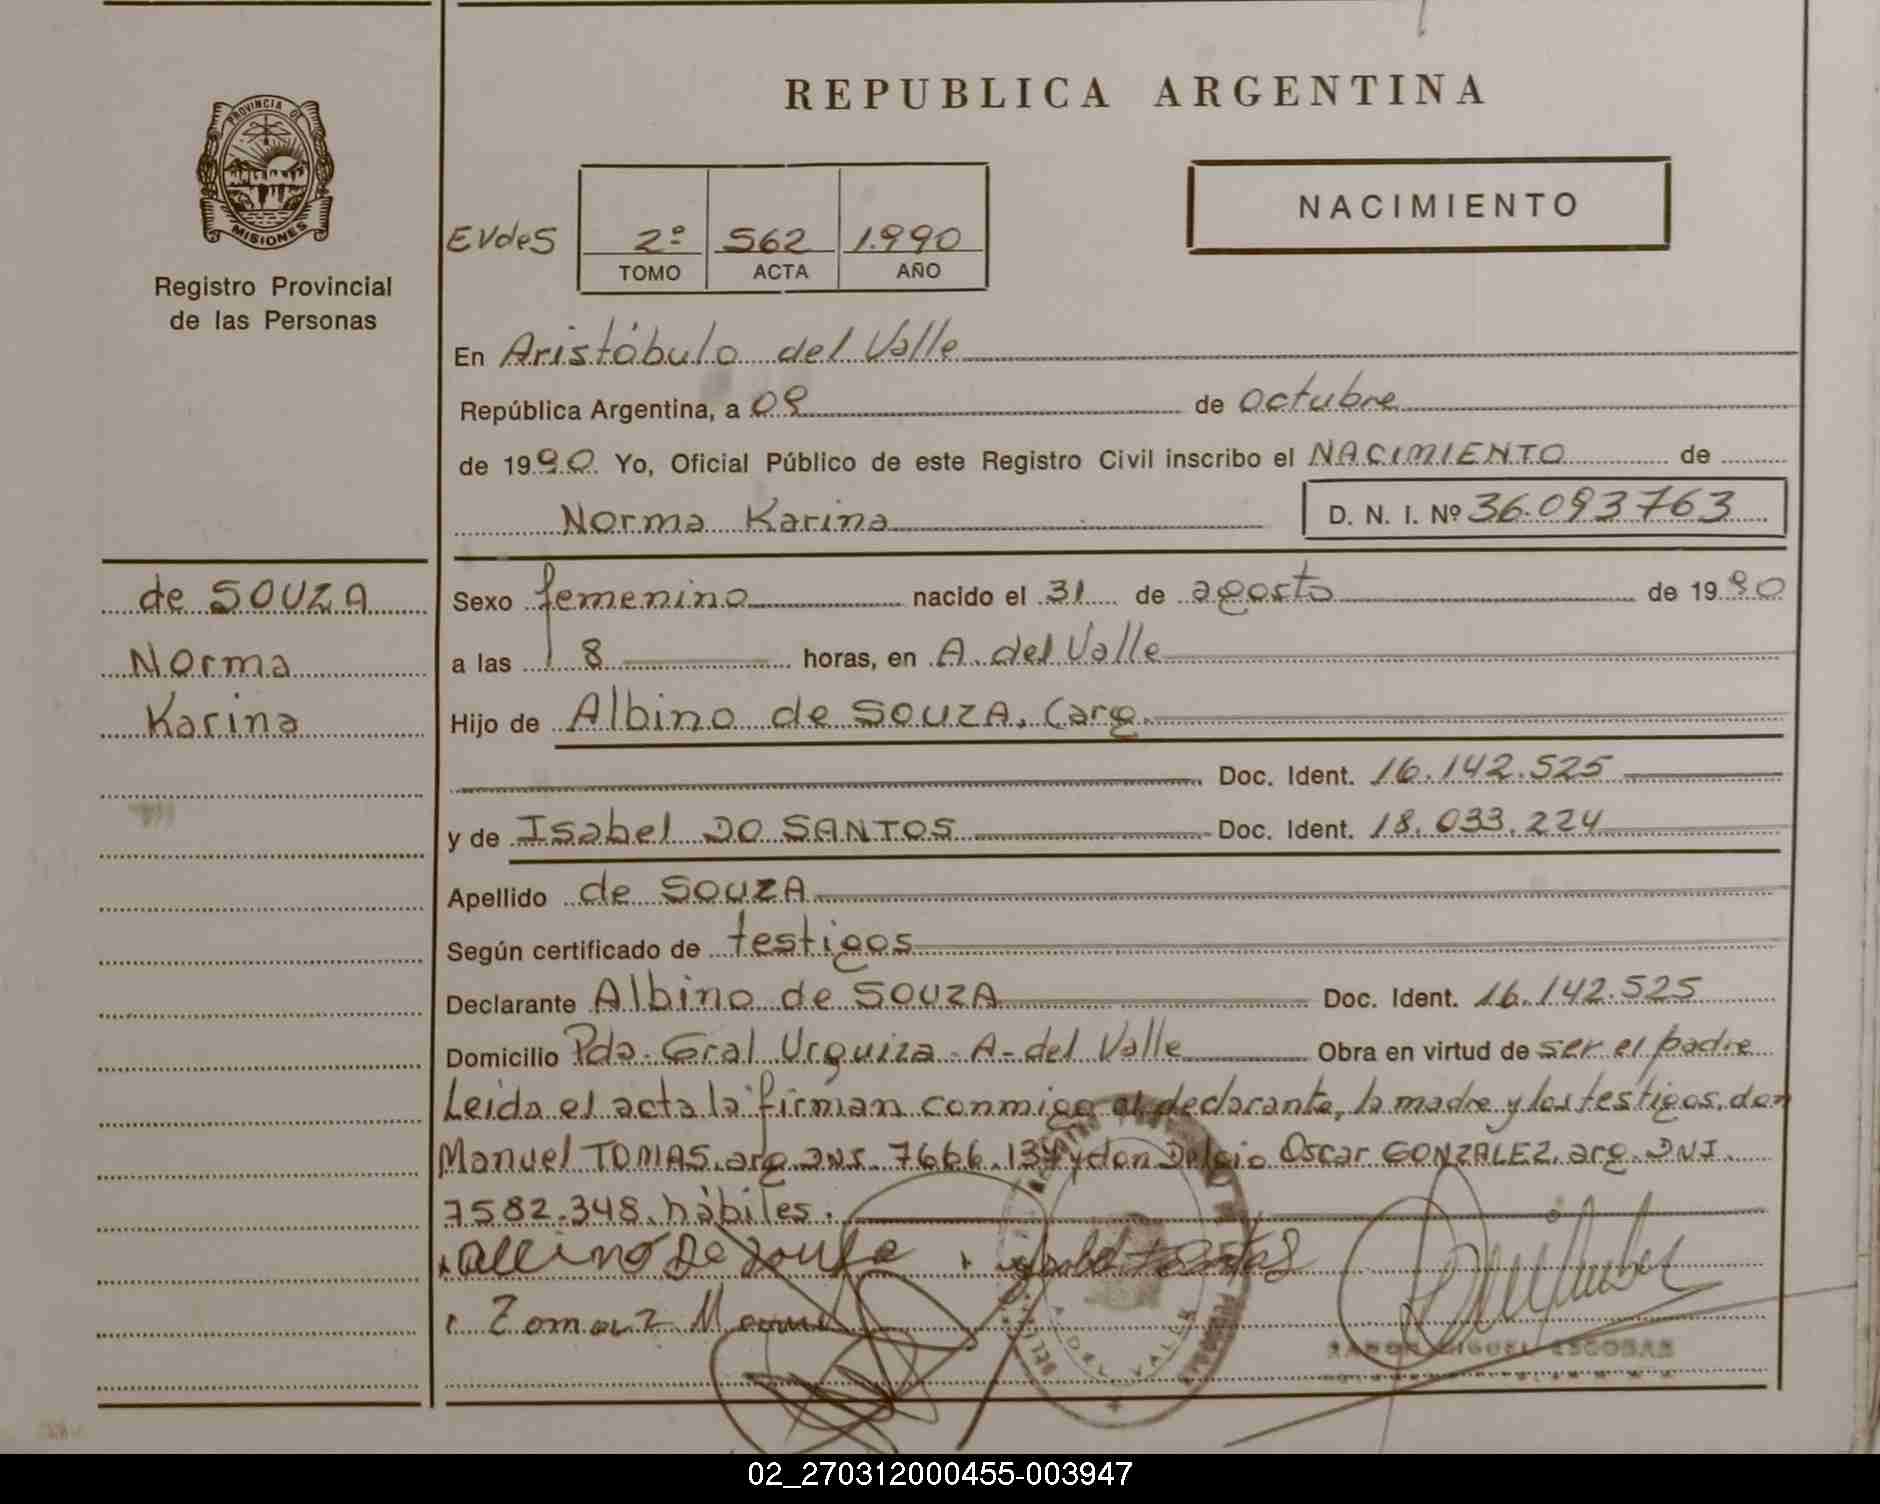 REPUBLICA ARGENTINA
PROVINCIA DE
MISIONES
Registro Provincial
de las Personas
NACIMIENTO
EVdeS 2º 562 1.990
TOMO ACTA AÑO
En Aristóbulo del Valle
República Argentina, a 09 de octubre
de 1990 Yo, Oficial Público de este Registro Civil inscribo el NACIMIENTO de
Norma Karina D. N. I. Nº 36.093763
de SOUZA
Norma
Karina
Sexo femenino nacido el 31 de agosto de 1990
a las 8 horas, en A. del Valle
Hijo de Albino de SOUZA. (arg.
Doc. Ident. 16.142.525
y de Isabel DO SANTOS Doc. Ident. 18.033.224
Apellido de SOUZA
Según certificado de testigos
Declarante Albino de SOUZA Doc. Ident. 16.142.525
Domicilio Pda. Gral Urquiza - A- del Valle Obra en virtud de ser el padre
Leida el acta la firman conmigo el declarante, la madre y los testigos, don
Manuel TOMAS. arg. DNI. 7666.134 y don Delcio Oscar GONZALEZ. arg. DNI.
7582.348. hábiles.
Albino De Souza
MIGUEL ESCOBAR
A. DEL VALLE
02_270312000455-003947